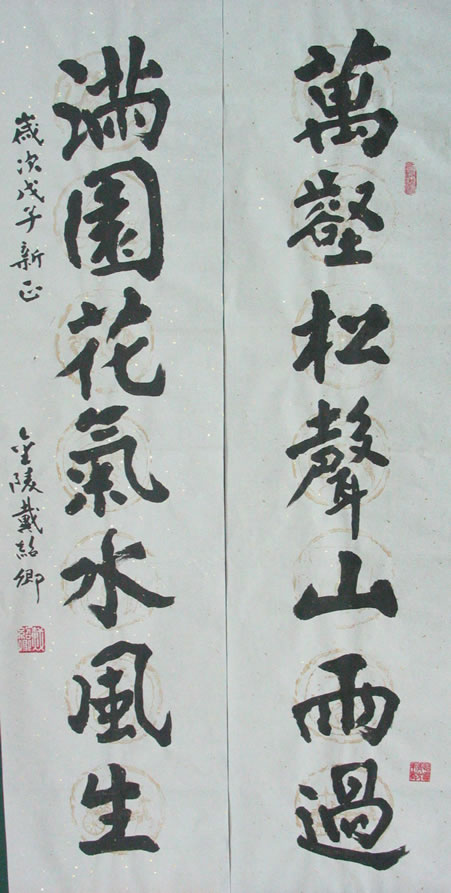 萬壑松聲山雨過
滿園花氣水風生
歲次戊子新正
金陵戴紹卿